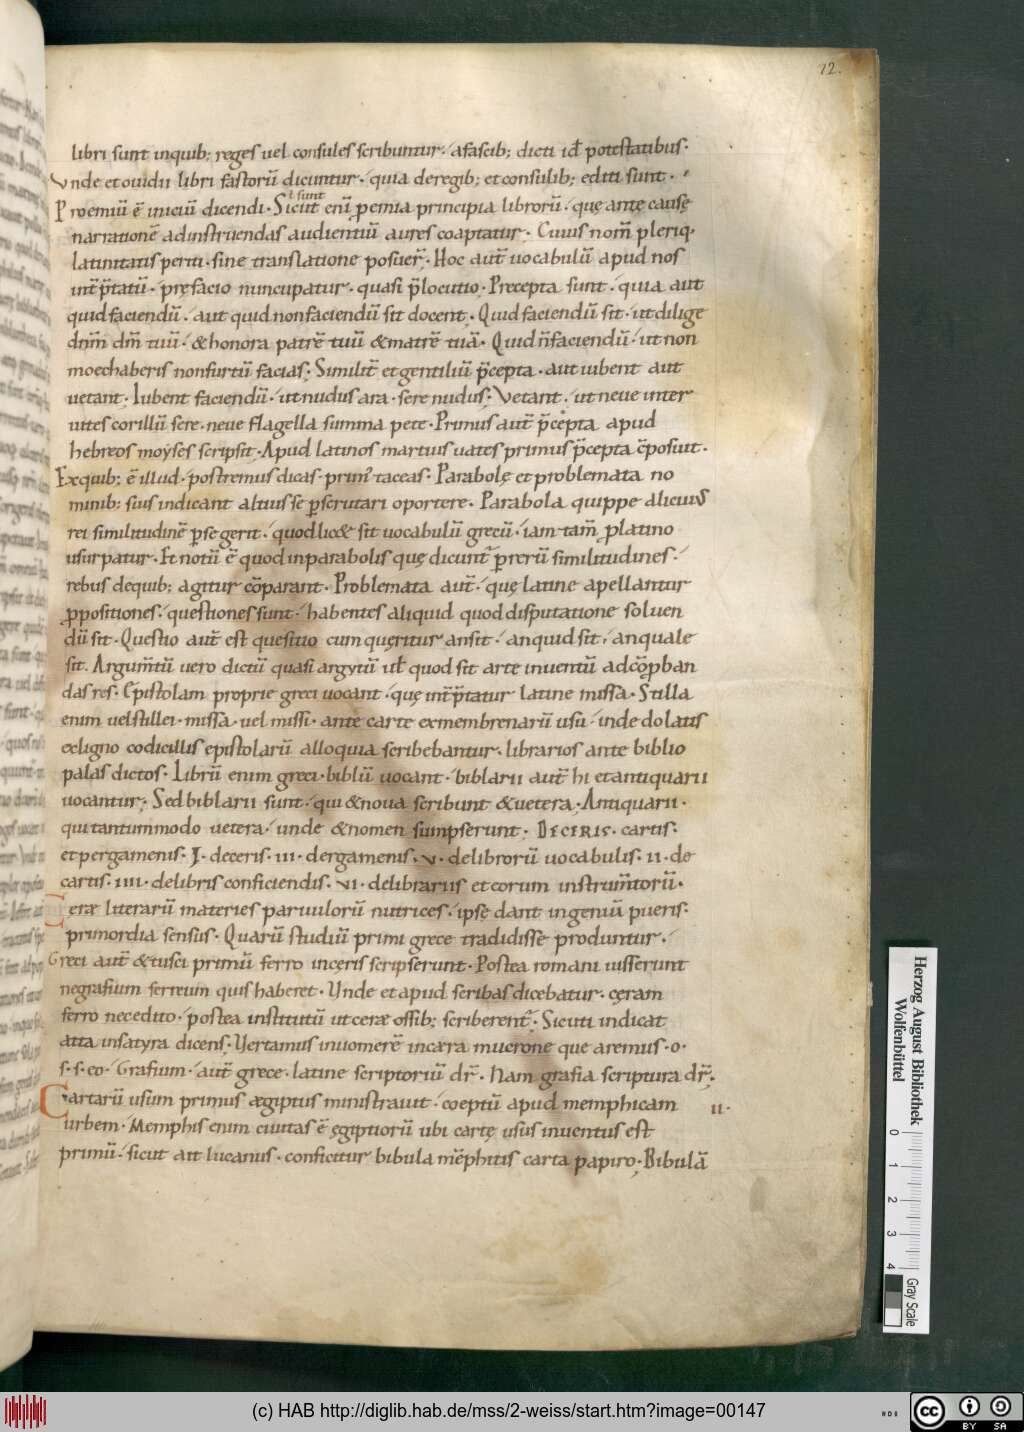 72.
libri sunt inquib; reges uel consules scribuntur. afascib; dicti id̄ potestatibus.
Vnde et ouidii libri fastorū dicuntur. quia deregib; et consulib; editi sunt.
ł sunt
Proemiū ē iniciū dicendi. Sicut enī ꝓemia principia librorū. quę ante causę
narrationē adinstruendas audientiū aures coaptatur. Cuius nom̄ pleriq.
latinitatis periti. sine translatione posuer̄. Hoc aut̄ uocabulū apud nos
int̄p̄tatū. pręfacio nuncupatur. quasi p̄locutio. Precepta sunt. quia aut
quid faciendū. aut quid nonfaciendū sit docent. Quid faciendū sit. ut dilige
dnm̄ dm̄ tuū. & honora patrē tuū & matrē tuā. Quid n̄faciendū. ut non
moechaberis nonfurtū facias; Similit̄ et gentiliū p̄cepta. aut iubent aut
uetant; Iubent faciendū. ut nudus ara. sere nudus; Vetant. ut neue inter
uites corillū sere. neue flagella summa pete. Primus aut̄ p̄cepta apud
hebreos moẏses scripsit. Apud latinos martius uates primus p̄cepta c̄posuit.
Exquib; ē illud. postremus dicas. prim' taceas. Parabolę et problemata no
minib; suis indicant altius se ꝑscrutari oportere. Parabola quippe alicuius
rei similitudinē p̄se gerit. quod lic& sit uocabulū grecū. iam tam̄ ꝓ latino
usurpatur. Et notū ē quod inparabolis quę dicunt̄ p̄rerū similitudines.
rebus dequib; agitur cōparant. Problemata aut̄. quę latine apellantur
ꝓpositiones. questiones sunt. habentes aliquid quod disputatione soluen
dū sit. Questio aut̄ est quesitio cum quęritur ansit. anquid sit. anquale
sit. Argum̄tū uero dictū quasi argytū ut̄ quod sit arte inuentū adcōꝓban
das res. Epistolam proprie greci uocant. quę int̄p̄tatur latine missa. Stilla
enim uel stillei. missa. uel missi. ante carte exmembrenarū usū. inde dolatis
exligno codicillis epistolarū alloquia scribebantur. librarios ante biblio
palas dictos. Librū enim greci. biblū uocant. biblarii aut̄ hi et antiquarii
uocantur; Sed biblarii sunt. qui & noua scribunt & uetera; Antiquarii.
qui tantummodo uetera. unde & nomen sumpserunt; DECERIS. cartis.
et pergamenis. I. deceris. III. dergamenis. V. delibrorū uocabulis. II. de
cartis. IIII. delibris conficiendis. VI. delibrariis et eorum instrum̄torū.
Cerae literarū materies paruulorū nutrices. ipse dant ingeniū pueris.
primordia sensus. Quarū studiū primi grece tradidisse produntur.
Greci aut̄ & tusci primū ferro inceris scripserunt. Postea romani iusserunt
negrafium ferreum quis haberet. Vnde et apud scribas dicebatur. cęram
ferro necedito. postea institutū ut cerae ossib; scriberent̄. Sicuti indicat
atta insatyra dicens; Vertamus inuomerē incaera mucrone que aremus. o.
s. s. eo. Grafium. aut̄ grece. latine scriptoriū dr̄. Nam grafia scriptura dr̄.
Cartarū usum primus aegiptus ministrauit. coeptū apud memphicam II.
urbem. Memphis enim ciuitas ē ęgiptiorū ubi cartę usus inuentus est
primū. sicut ait lucanus. conficitur bibula mēphitis carta papiro. Bibulā
Herzog August Bibliothek
Wolfenbüttel
0 1 2 3 4
Gray Scale
(c) HAB http://diglib.hab.de/mss/2-weiss/start.htm?image=00147
cc BY SA